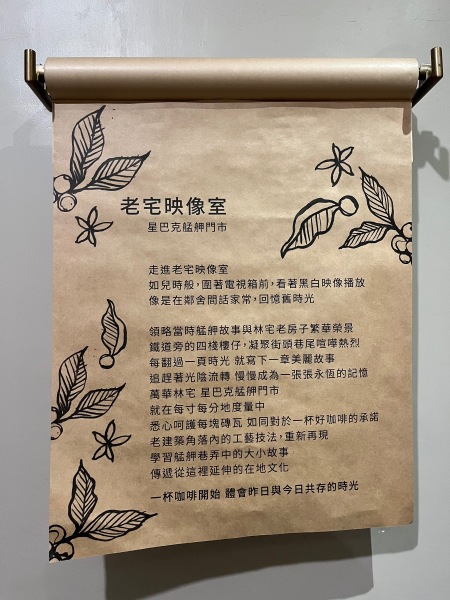 老宅映像室
星巴克艋舺門市
走進老宅映像室
如兒時般，圍著電視箱前，看著黑白映像播放
像是在鄰舍間話家常，回憶舊時光
領略當時艋舺故事與林宅老房子繁華榮景
鐵道旁的四棧樓仔，凝聚街頭巷尾喧嘩熱烈
每翻過一頁時光 就寫下一章美麗故事
追趕著光陰流轉 慢慢成為一張張永恆的記憶
萬華林宅 星巴克艋舺門市
就在每寸每分地度量中
悉心呵護每塊磚瓦 如同對於一杯好咖啡的承諾
老建築角落內的工藝技法，重新再現
學習艋舺巷弄中的大小故事
傳遞從這裡延伸的在地文化
一杯咖啡開始 體會昨日與今日共存的時光